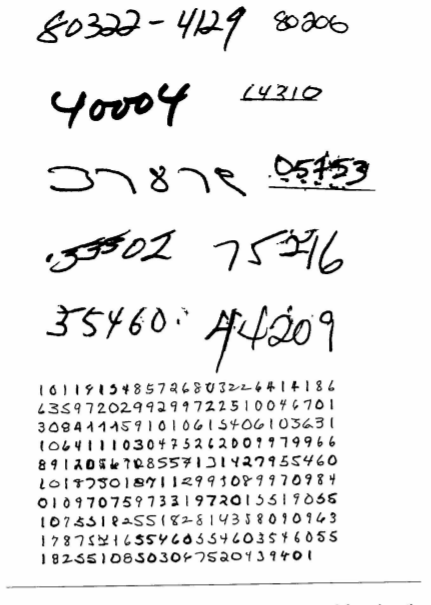 80322-4129 80206
40004 14310
37878 05753
.35502 75216
35460: 44209
1011915485726803226414186
6359720299299722510046701
3084111591010615406103631
1064111030475262009979966
8912056708557131427955460
1018730187112993089970984
0109707597331972015519055
1075518255182814358090943
1787521655460554603546055
1825510850304752043940​1